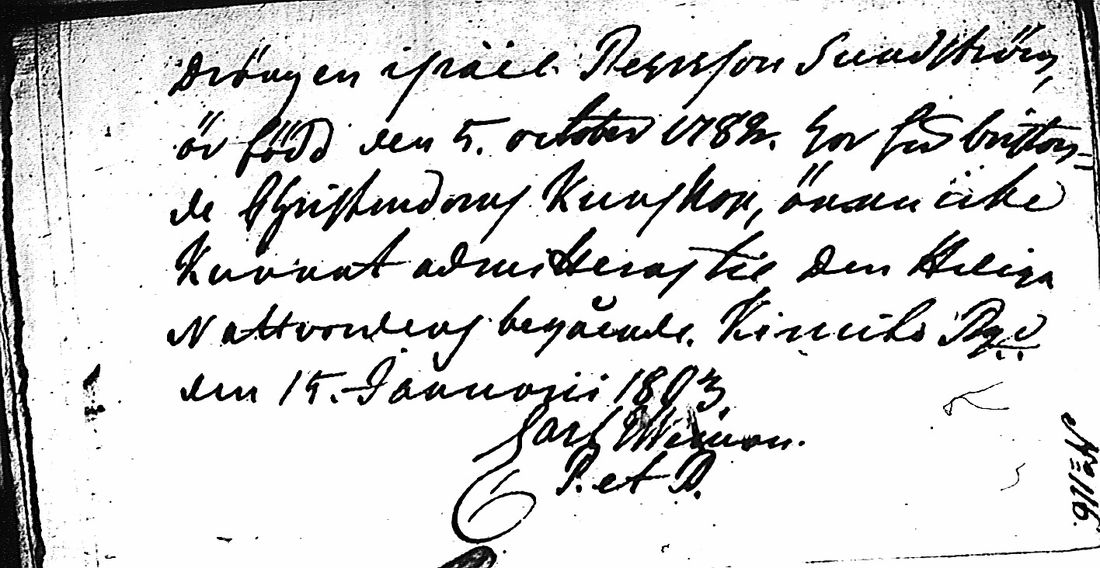 Drängen israel Persson Sundström,
är född den 5. october 178
de Christendoms Kunskap, ännu icke
Kunnat admitteras til den Heliga
Nattvardens begående. Kimito
den 15. Januarii 1803
Carl
P. et P.
No 116.